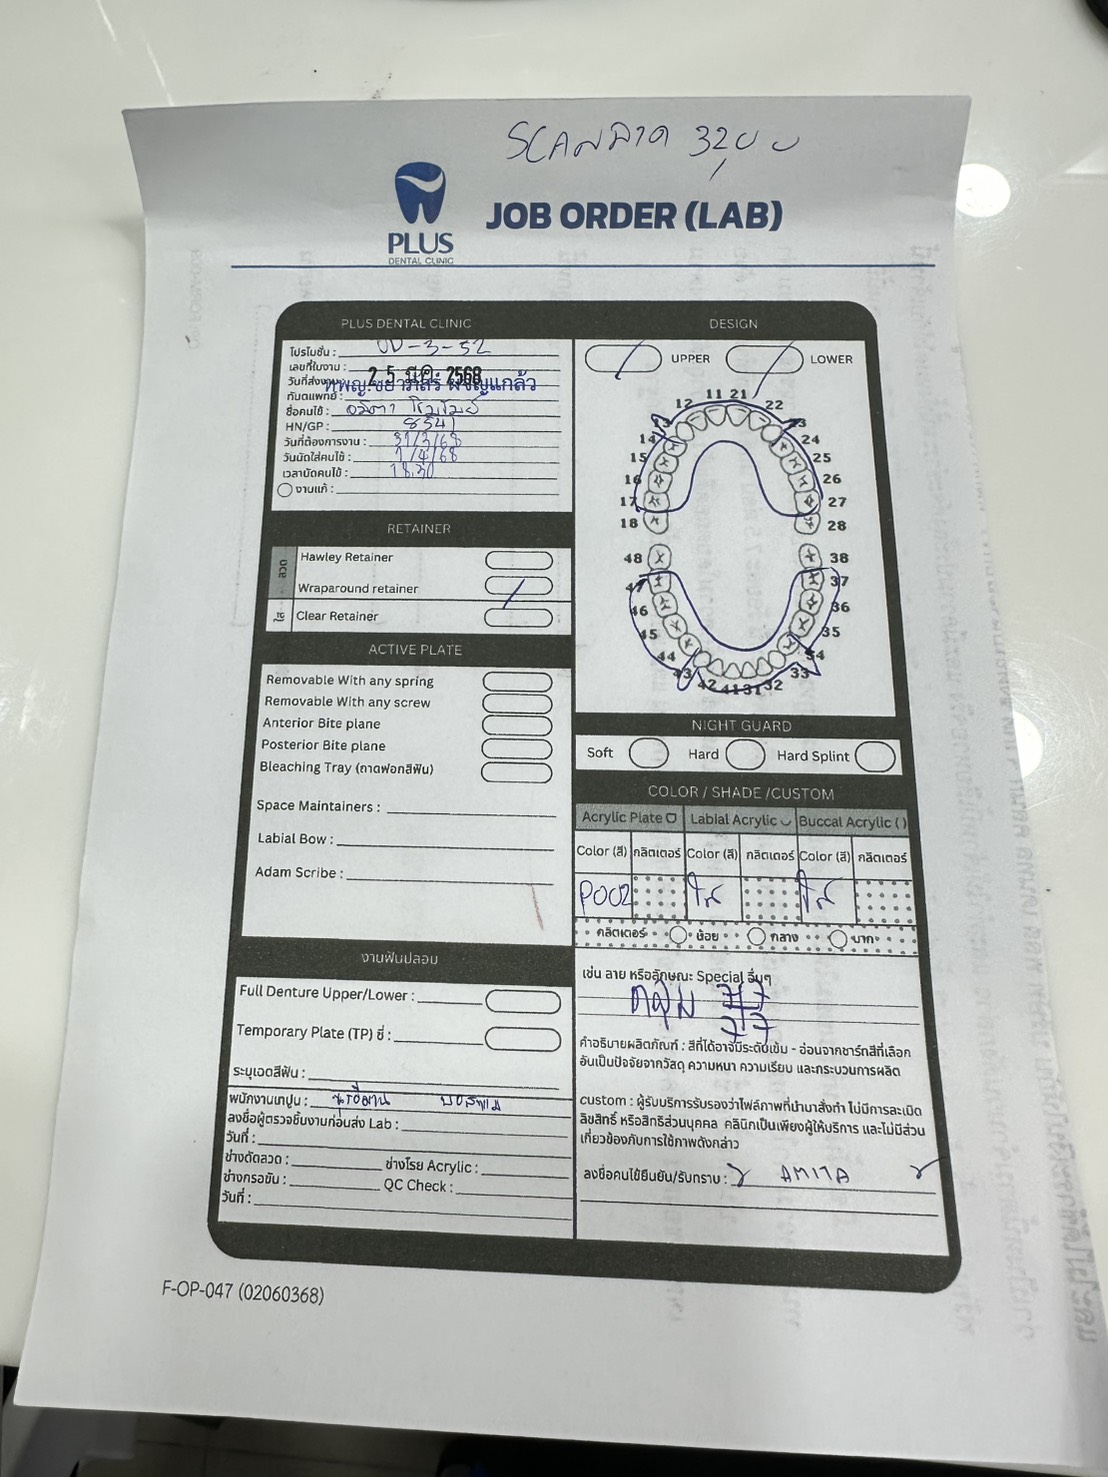 SCAN ลาด 32 บน
PLUS
DENTAL CLINIC
JOB ORDER (LAB)
PLUS DENTAL CLINIC
โปรโมชั่น :
เลขที่ใบงาน : OD-3-52
วันที่ส่งงาน : 25 มี.ค. 2568
ทันตแพทย์ :
ชื่อคนไข้ : อมิตา
HN/GP : 8541
วันที่ต้องการงาน : 31/3/68
วันนัดใส่คนไข้ : 1/4/68
เวลานัดคนไข้ : 18.30
งานแก้ :
RETAINER
ลวด
Hawley Retainer
Wraparound retainer
ใส
Clear Retainer
ACTIVE PLATE
Removable With any spring
Removable With any screw
Anterior Bite plane
Posterior Bite plane
Bleaching Tray (ถาดฟอกสีฟัน)
Space Maintainers :
Labial Bow :
Adam Scribe :
งานฟันปลอม
Full Denture Upper/Lower :
Temporary Plate (TP) ซี่ :
ระบุเฉดสีฟัน :
พนักงานเทปูน :
ลงชื่อผู้ตรวจชิ้นงานก่อนส่ง Lab :
วันที่ :
ช่างดัดลวด : ช่างโรย Acrylic :
ช่างกรอขัน : QC Check :
วันที่ :
DESIGN
UPPER LOWER
11 21
12 22
13 23
14 24
15 25
16 26
17 27
18 28
48 38
47 37
46 36
45 35
44 34
43 33
42 41 31 32
NIGHT GUARD
Soft Hard Hard Splint
COLOR / SHADE /CUSTOM
Acrylic Plate Labial Acrylic Buccal Acrylic ( )
Color (สี) กลิตเตอร์ Color (สี) กลิตเตอร์ Color (สี) กลิตเตอร์
P002 ใส ใส
กลิตเตอร์ น้อย กลาง มาก
เช่น ลาย หรือลักษณะ Special อื่นๆ
คลุม 7|7
7|7
คำอธิบายผลิตภัณฑ์ : สีที่ได้อาจมีระดับเข้ม - อ่อนจากชาร์ทสีที่เลือก
อันเป็นปัจจัยจากวัสดุ ความหนา ความเรียบ และกระบวนการผลิต
custom : ผู้รับบริการรับรองว่าไฟล์ภาพที่นำมาสั่งทำ ไม่มีการละเมิด
ลิขสิทธิ์ หรือสิทธิส่วนบุคคล คลินิกเป็นเพียงผู้ให้บริการ และไม่มีส่วน
เกี่ยวข้องกับการใช้ภาพดังกล่าว
ลงชื่อคนไข้ยืนยัน/รับทราบ : AMITA
F-OP-047 (02060368)